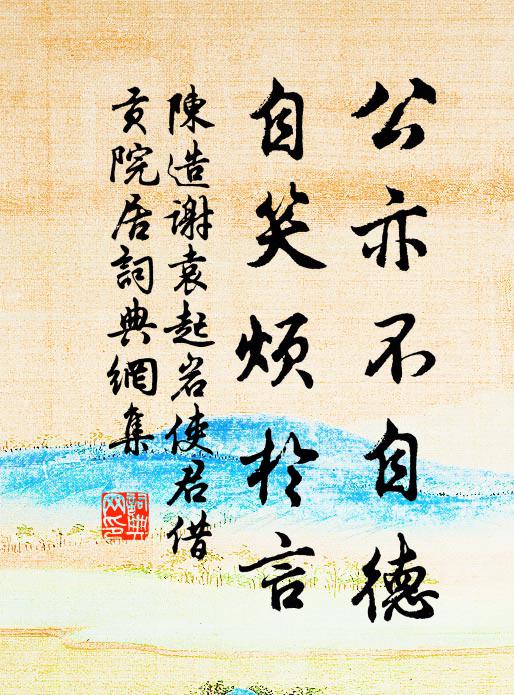 公亦不自德
自笑烦於言
陳造謝袁起岩使君借
貢院居詞典網集
詞典
网印